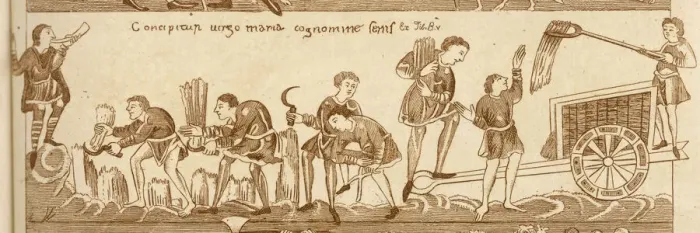 Concipitur uirgo maria cognomine senis